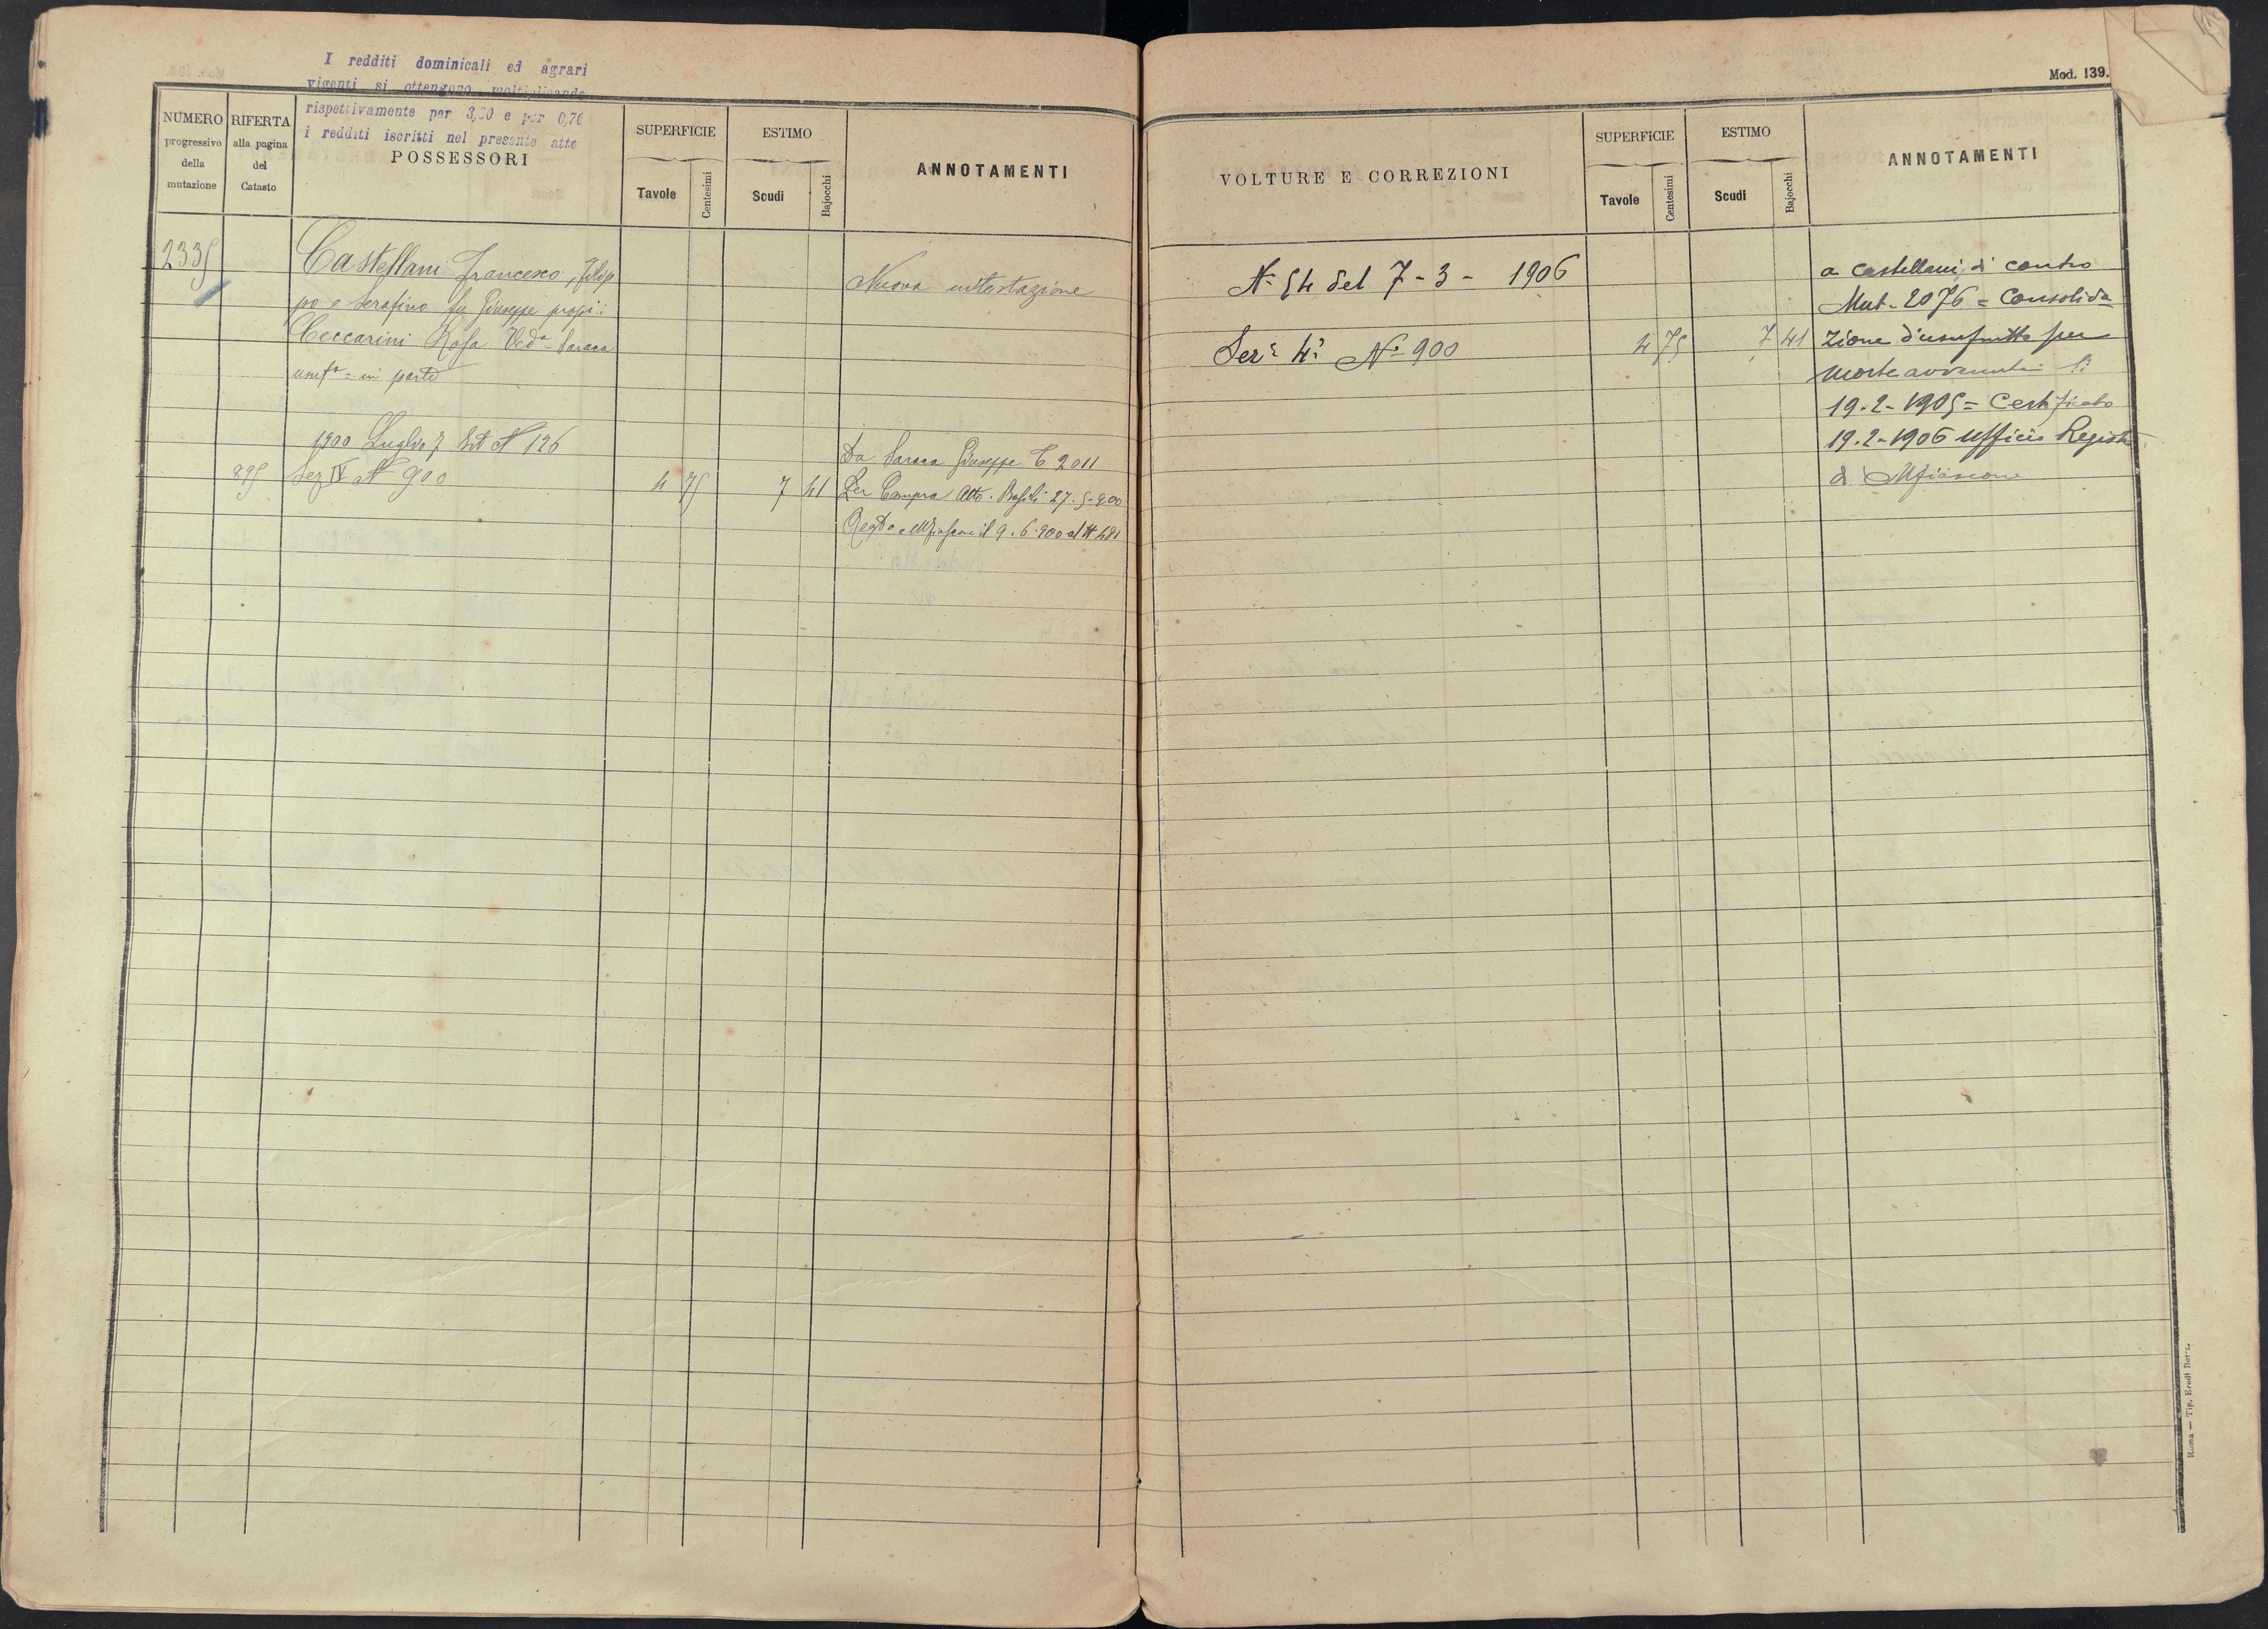 I redditi dominicali ed agrari
vigenti si ottengono moltiplicando
rispettivamente per 3,50 e per 0,76
i redditi iscritti nel presente atto
NUMERO
progressivo
della
mutazione
RIFERTA
alla pagina
del
Catasto
POSSESSORI
SUPERFICIE
Tavole
Centesimi
ESTIMO
Scudi
Bajocchi
ANNOTAMENTI
2335
Castellani Francesco, Filip
po e Serafino fu Giuseppe propi:
Ceccarini Rosa Ved.a Saraca
usuf.a = in parte
Nuova intestazione
1900 Luglio 7 N 126
Da Saraca Giuseppe C 2011
895 Sez IV N 900 4 75 7 41 Per Compra Atto Basili 27-5-900
Regto a Mfiascone il 9.6.900 al N 481
Mod. 139.
VOLTURE E CORREZIONI
SUPERFICIE
Tavole
Centesimi
ESTIMO
Scudi
Bajocchi
ANNOTAMENTI
N. 54 del 7-3-1906
Sez: 4: N. 900 4 75 7 41
a Castellani di contro
Mut. 2076 = Consolida
zione d'usufrutto per
morte avvenuta li
19-2-1905 = Certificato
19.2-1906 Ufficio Registro
di Mfiascone
Roma — Tip. Eredi Botta